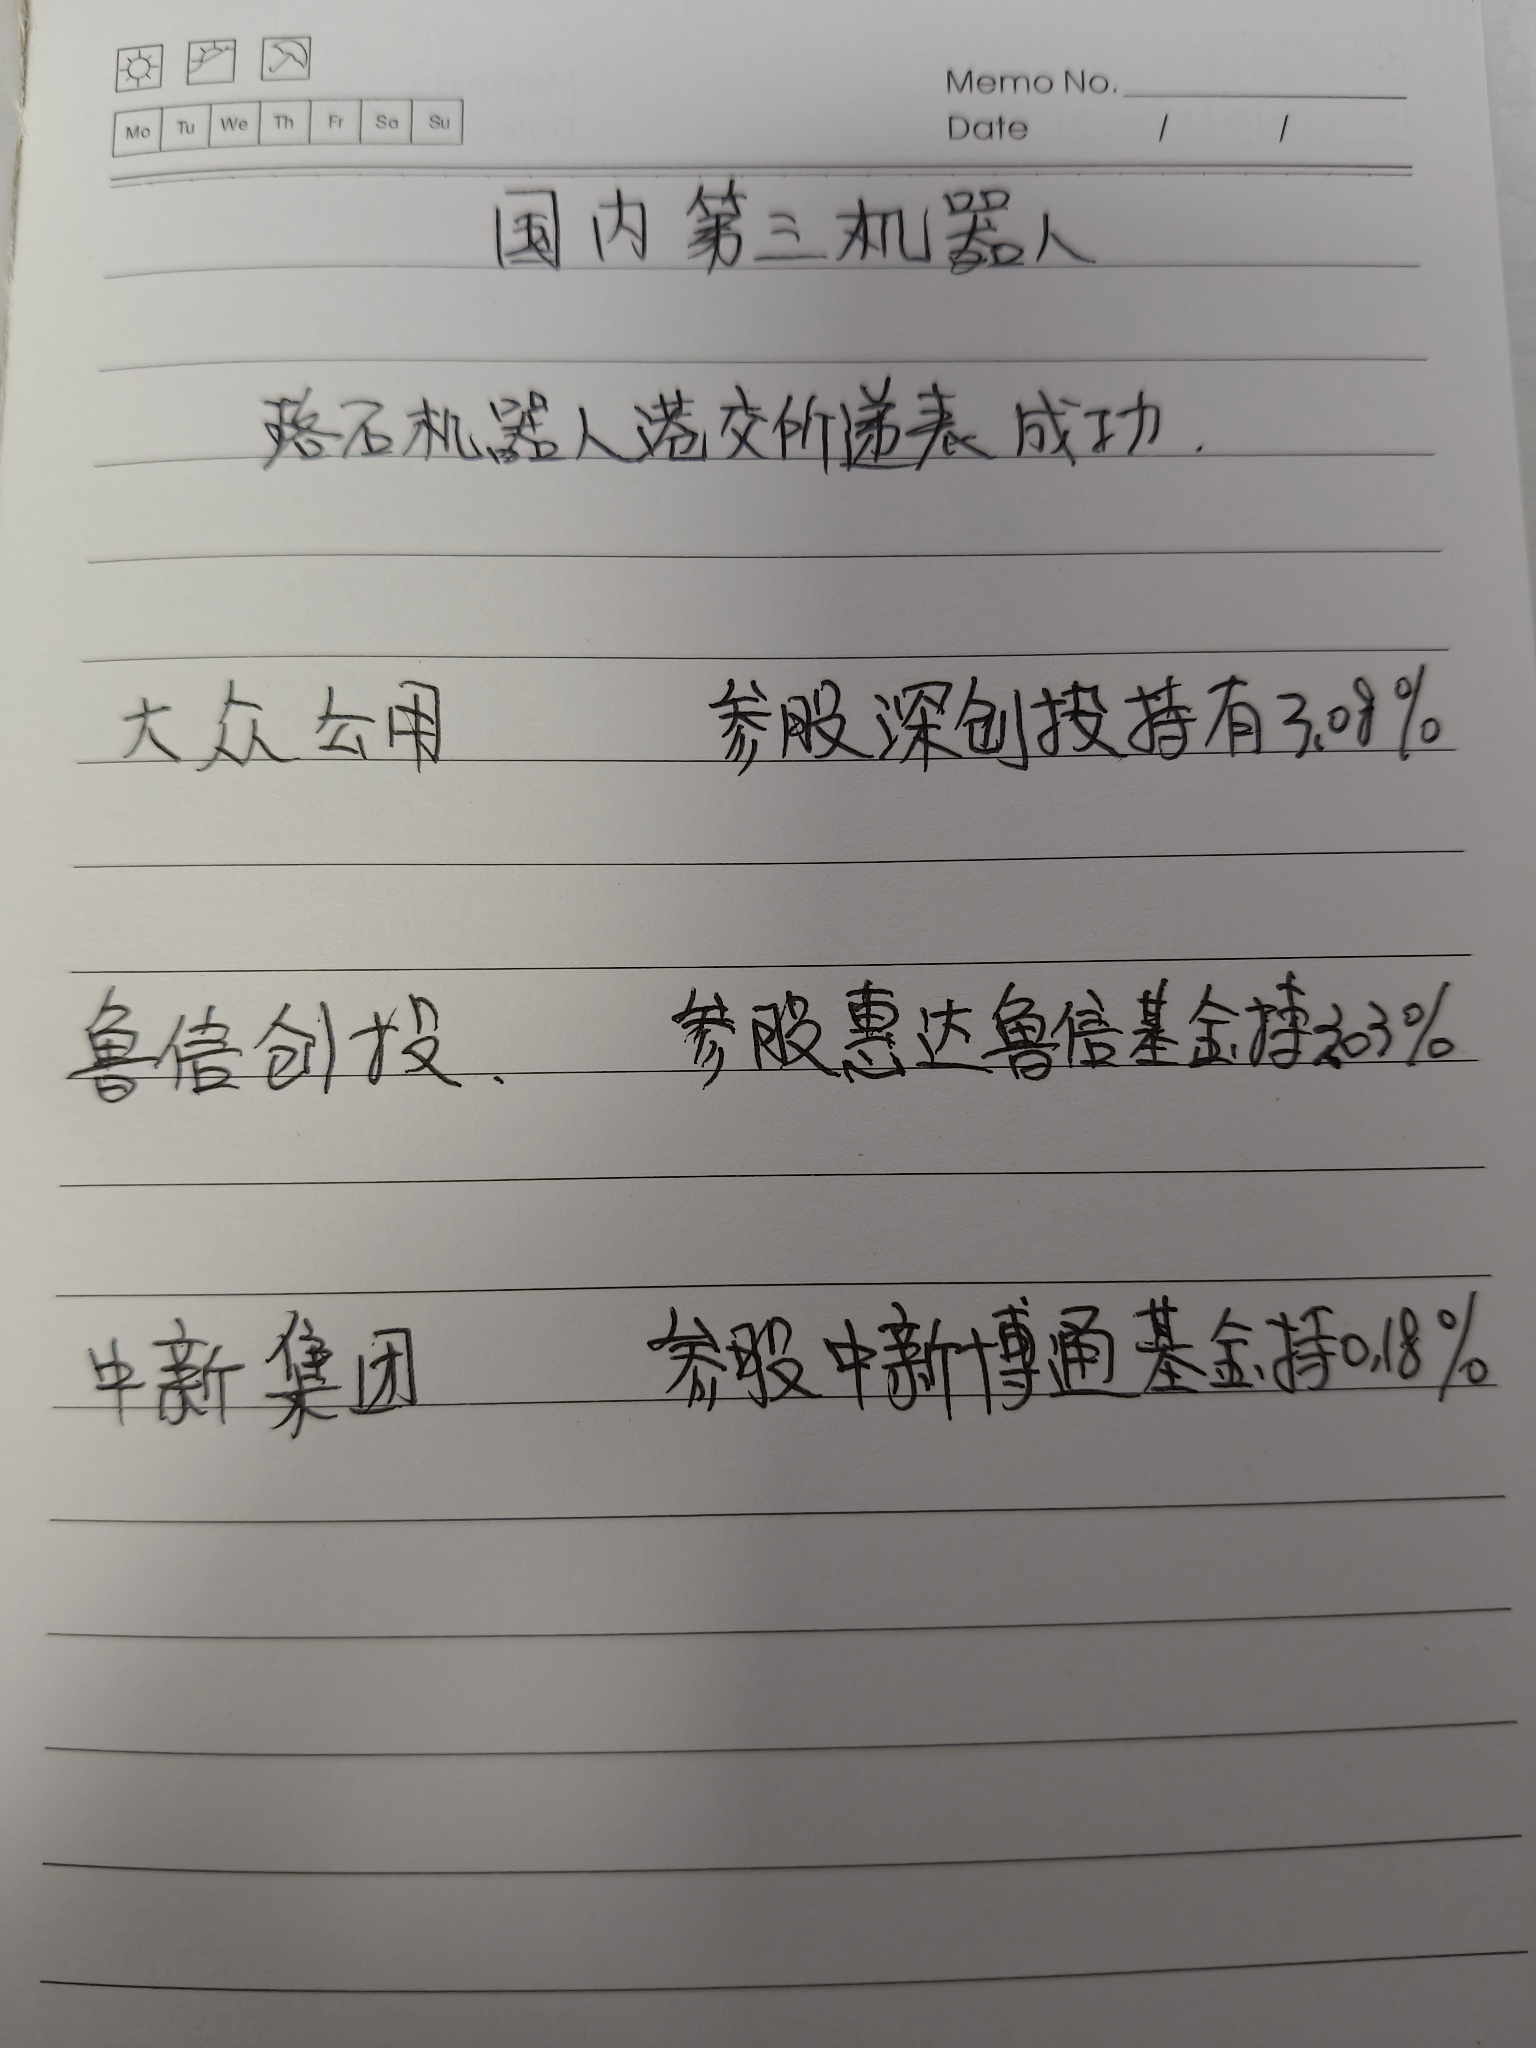 Memo No.
Mo Tu We Th Fr Sa Su
Date / /
国内第三机器人
珞石机器人港交所递表成功.
大众公用 参股深创投持有3.08%
鲁信创投. 参股惠达鲁信基金持3.03%
中新集团 参股中新博通基金持0.18%